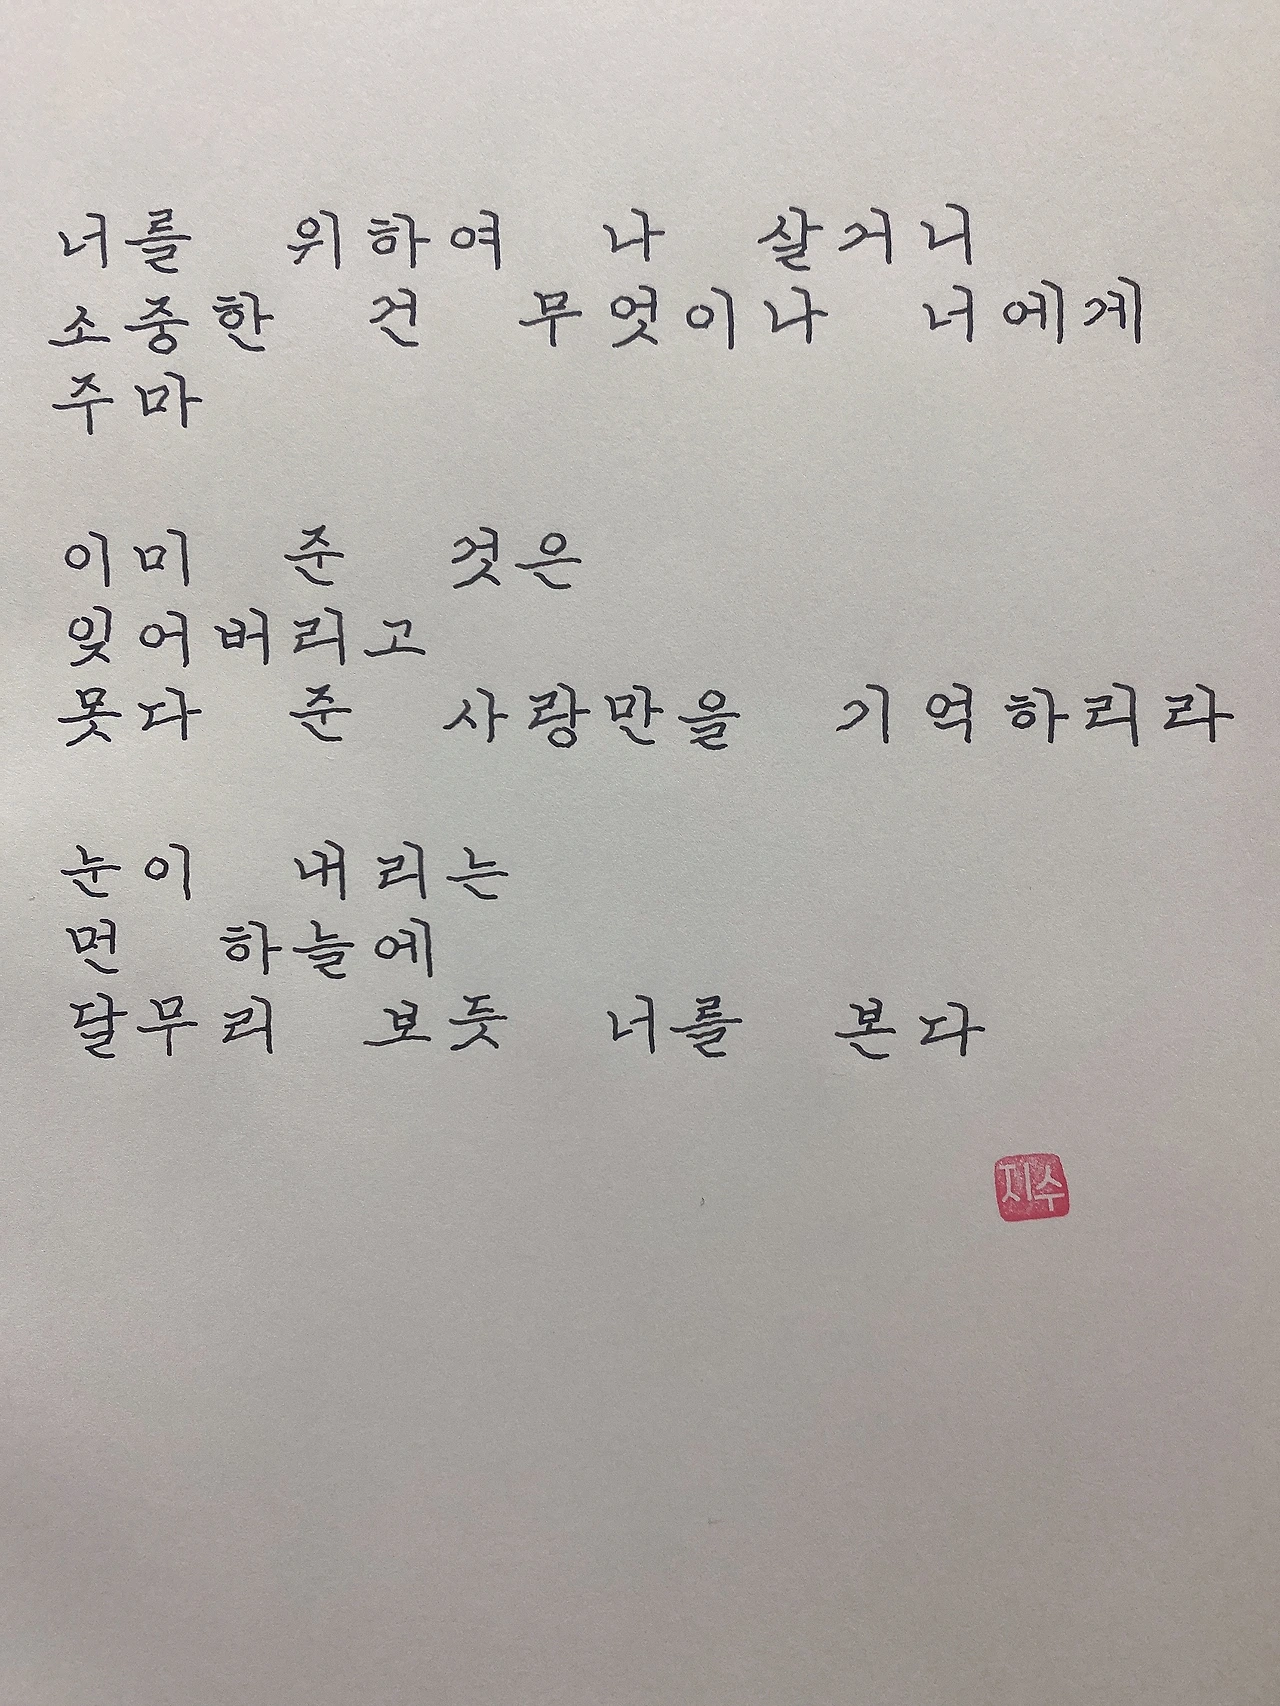 너를 위하여 나 살거니
소중한 건 무엇이나 너에게
주마
이미 준 것은
잊어버리고
못다 준 사랑만을 기억하리라
눈이 내리는
먼 하늘에
달무리 보듯 너를 본다
지수